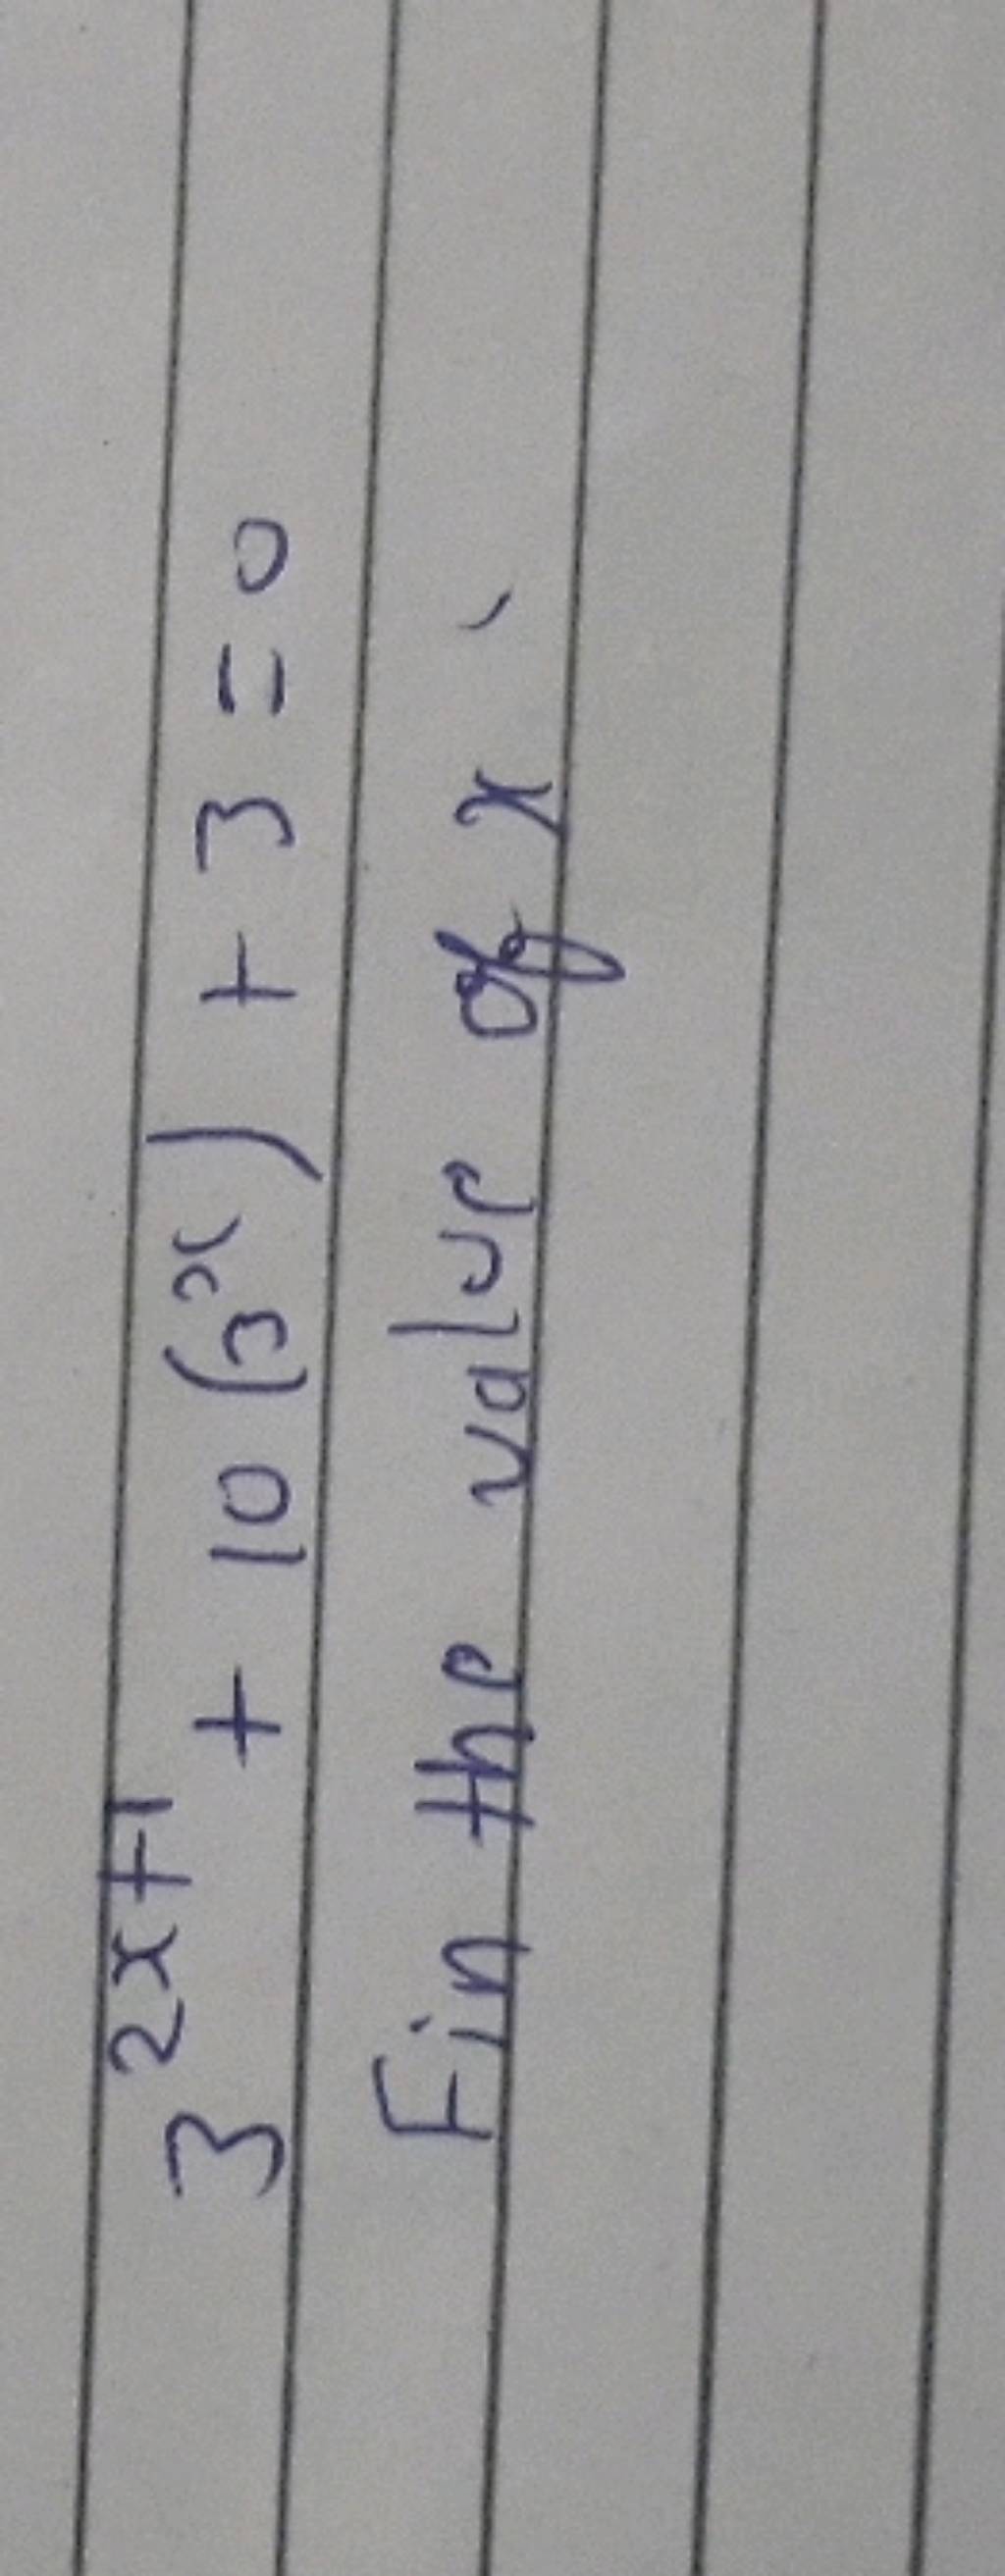 3^{2x+1} + 10(3^x) + 3 = 0
Fin the value of x